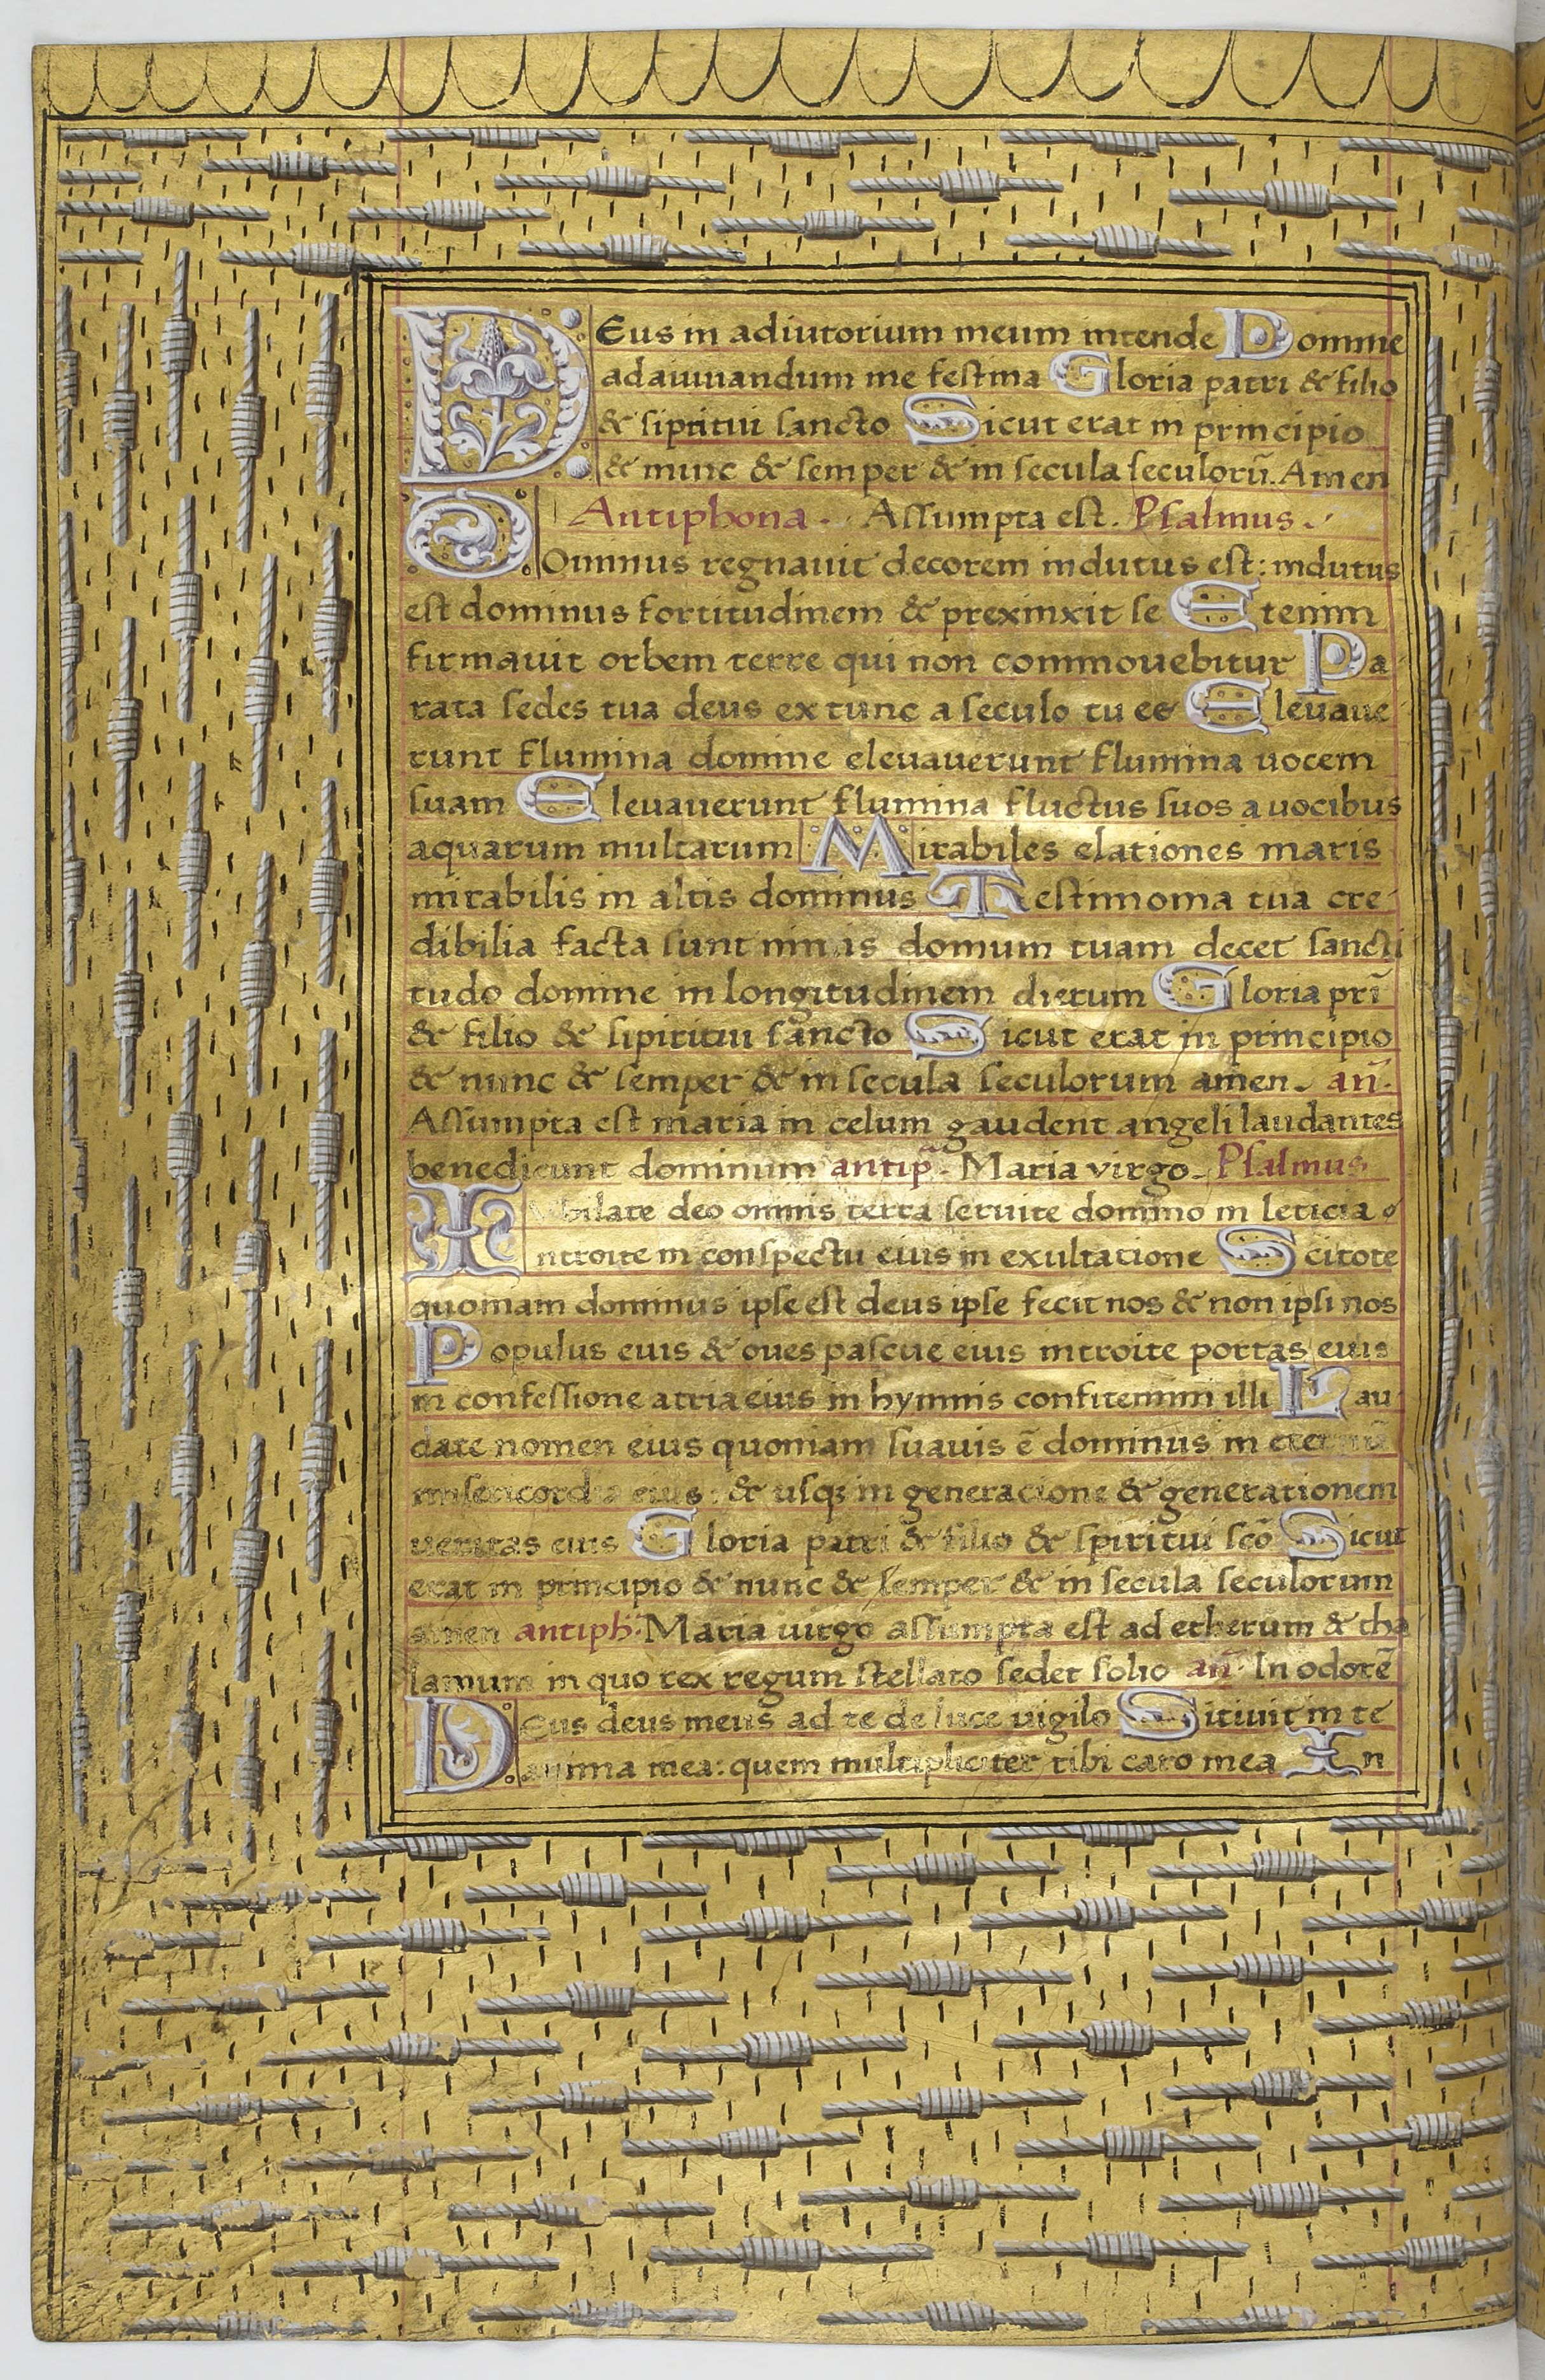 DEus in adiutorium meum intende Domine
adaiuuandum me festina Gloria patri & filio
& sipritui sancto Sicut erat in principio
& nunc & semper & in secula seculorũ. Amen
Antiphona. Assumpta est. Psalmus.
DOminus regnauit decorem indutus est: indutus
est dominus fortitudinem & prexinxit se Etenim
firmauit orbem terre qui non commouebitur Pa
rata sedes tua deus ex tunc a seculo tu es Eleuaue
runt flumina domine eleuauerunt flumina uocem
suam Eleuauerunt flumina fluctus suos a uocibus
aquarum multarum Mirabiles elationes maris
mirabilis in altis dominus Testimonia tua cre
dibilia facta sunt nimis domum tuam decet sancti
tudo domine in longitudinem dierum Gloria pri̅
& filio & sipiritui sancto Sicut erat in principio
& nunc & semper & in secula seculorum amen. an̅.
Assumpta est maria in celum gaudent angeli laudantes
benedicunt dominum antip̃. Maria virgo. Psalmus
Iubilate deo omnis terra seruite domino in leticia
Introite in conspectu eius in exultatione Scitote
quoniam dominus ipse est deus ipse fecit nos & non ipsi nos
Populus euis & oues pascue eius introite portas euis
in confessione atria eius in hymnis confitemini illi Lau
date nomen eius quoniam suauis ẽ dominus in eternũ
misericordia eius: & usqꝫ in generacione & generationem
ueritas eius Gloria patri & filio & spiritui scõ Sicut
erat in principio & nunc & semper & in secula seculorum
amen antiph: Maria uirgo assumpta est ad etherum & tha
lamum in quo rex regum stellato sedet solio an̅. In odorẽ
DEus deus meus ad te de luce vigilo Sitiuit in te
anima mea: quem multipliciter tibi caro mea In